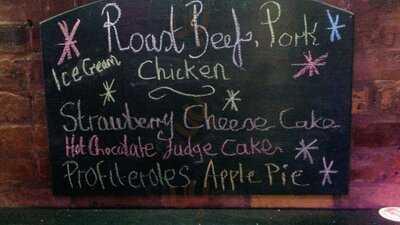 Roast Beef, Pork
Ice Cream
Chicken
Strawberry Cheese Cake
Hot Chocolate Fudge Cake
Profiteroles Apple Pie